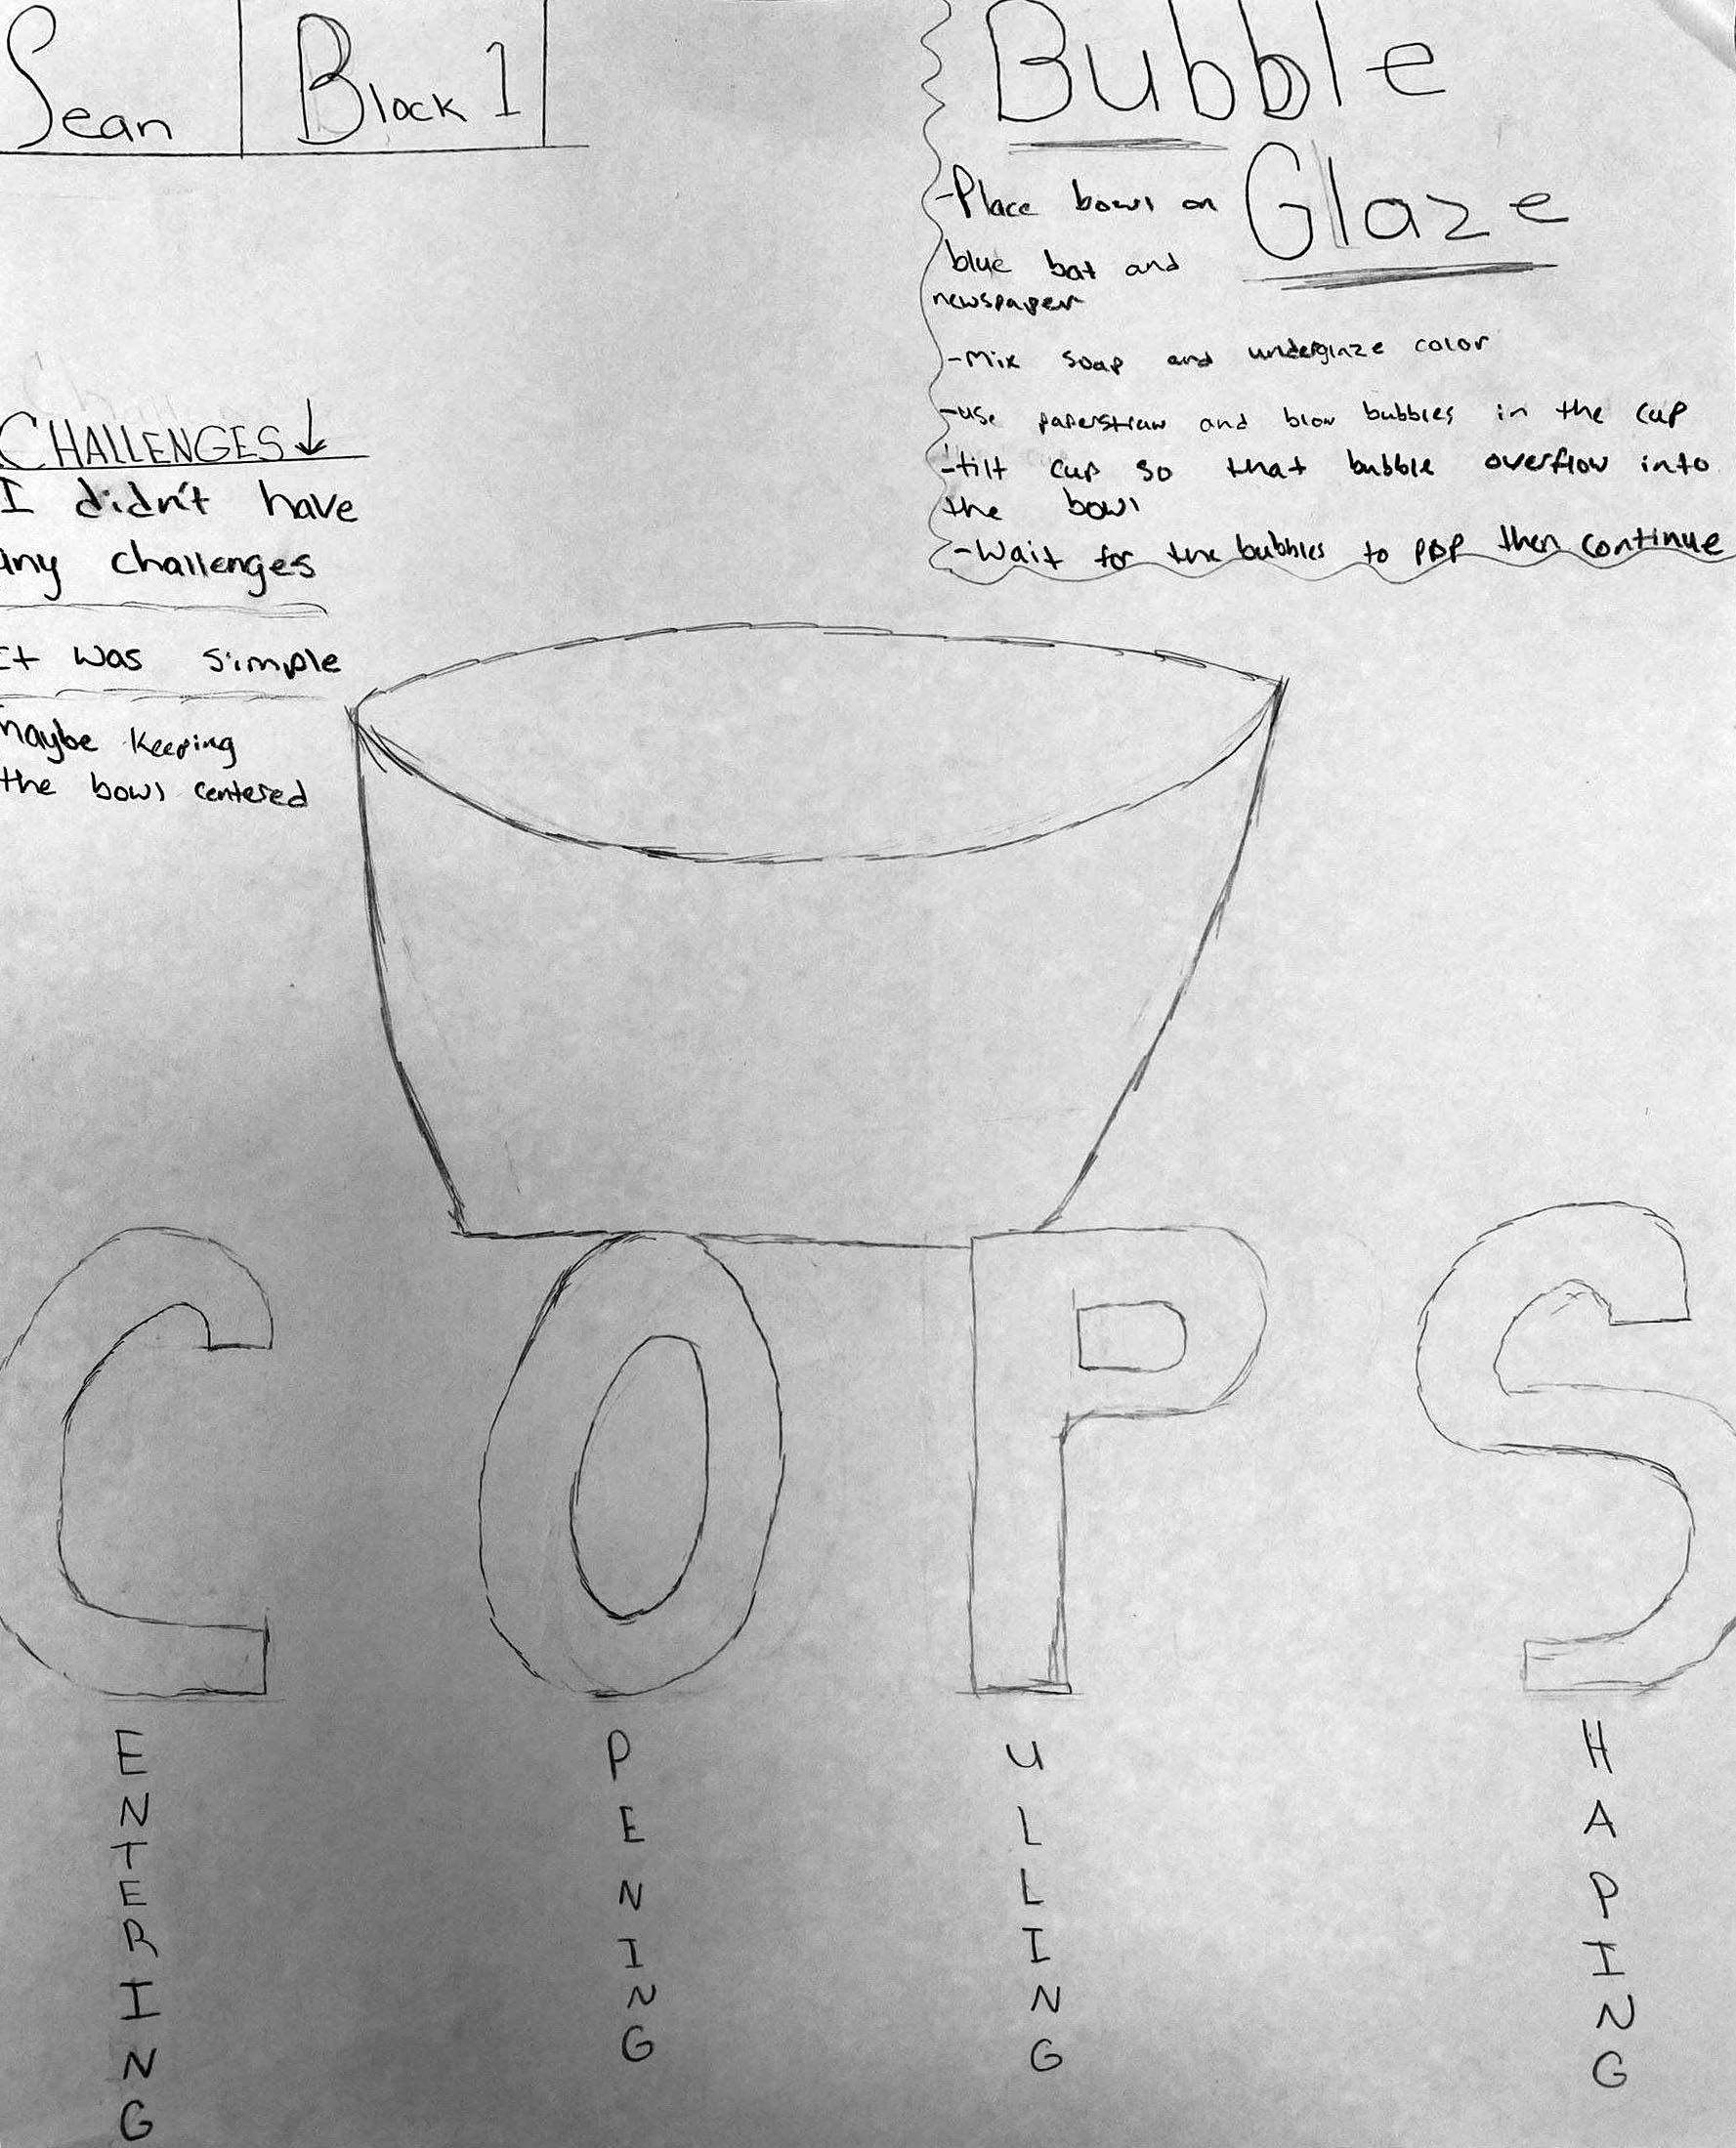 Sean Block 1
Bubble
Glaze
-Place bowl on
blue bat and
newspaper
-Mix soap and underglaze color
-use paperstraw and blow bubbles in the cup
-tilt cup so that bubble overflow into
the bowl
-Wait for the bubbles to pop then continue
CHALLENGES↓
I didn't have
any challenges
It was simple
maybe keeping
the bowl centered
C O P S
ENTERING
PENING
ULLING
HAPING